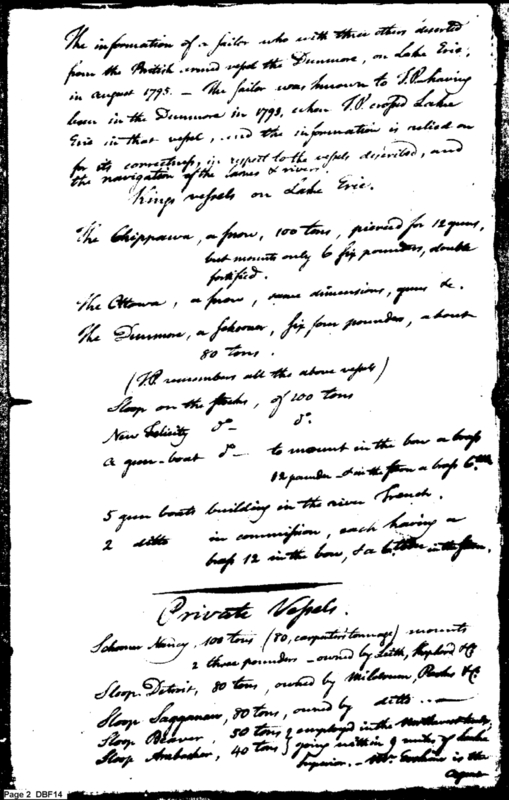 The information of a sailor who with three others deserted
from the British armed vessel the Dunmore, on Lake Erie,
in august 1795. — The sailor was known to T.P. having
been in the Dunmore in 1793, when T.P. crossed Lake
Erie in that vessel, and the information is relied on
for its correctness, in respect to the vessels described, and
the navigation of the lakes & rivers.
Kings vessels on Lake Erie.
The Chippawa, a snow, 100 tons, pierced for 12 guns,
but mounts only 6 six pounders, double
fortified.
The Ottowa, a snow, same dimensions, guns &c.
The Dunmore, a schooner, six four pounders, about
80 tons.
(T.P. remembers all the above vessels)
Sloop on the stocks, of 200 tons
New Felicity do— do.
a gun-boat do— to mount in the bow a brass
12 pounder — & in the stern a brass 6.
5 gun boats building in the river Trench.
2 ditto in commission, each having a
brass 12 in the bow, & a 6 in the stern.
Private Vessels.
Schooner Nancy, 100 tons (80, carpenters tonnage) mounts
2 three pounders — owned by Leith, Shepherd & Co
Sloop Detroit, 80 tons, owned by Meldrum, Parks & Co
Sloop Sagganaw, 80 tons, owned by ditto —
Sloop Beaver, 30 tons } employed in the Northwest trade,
Sloop Arabaska, 40 tons } going within 9 miles of Lake
Superior. — Mr. is the
agent
Page 2 DBF14